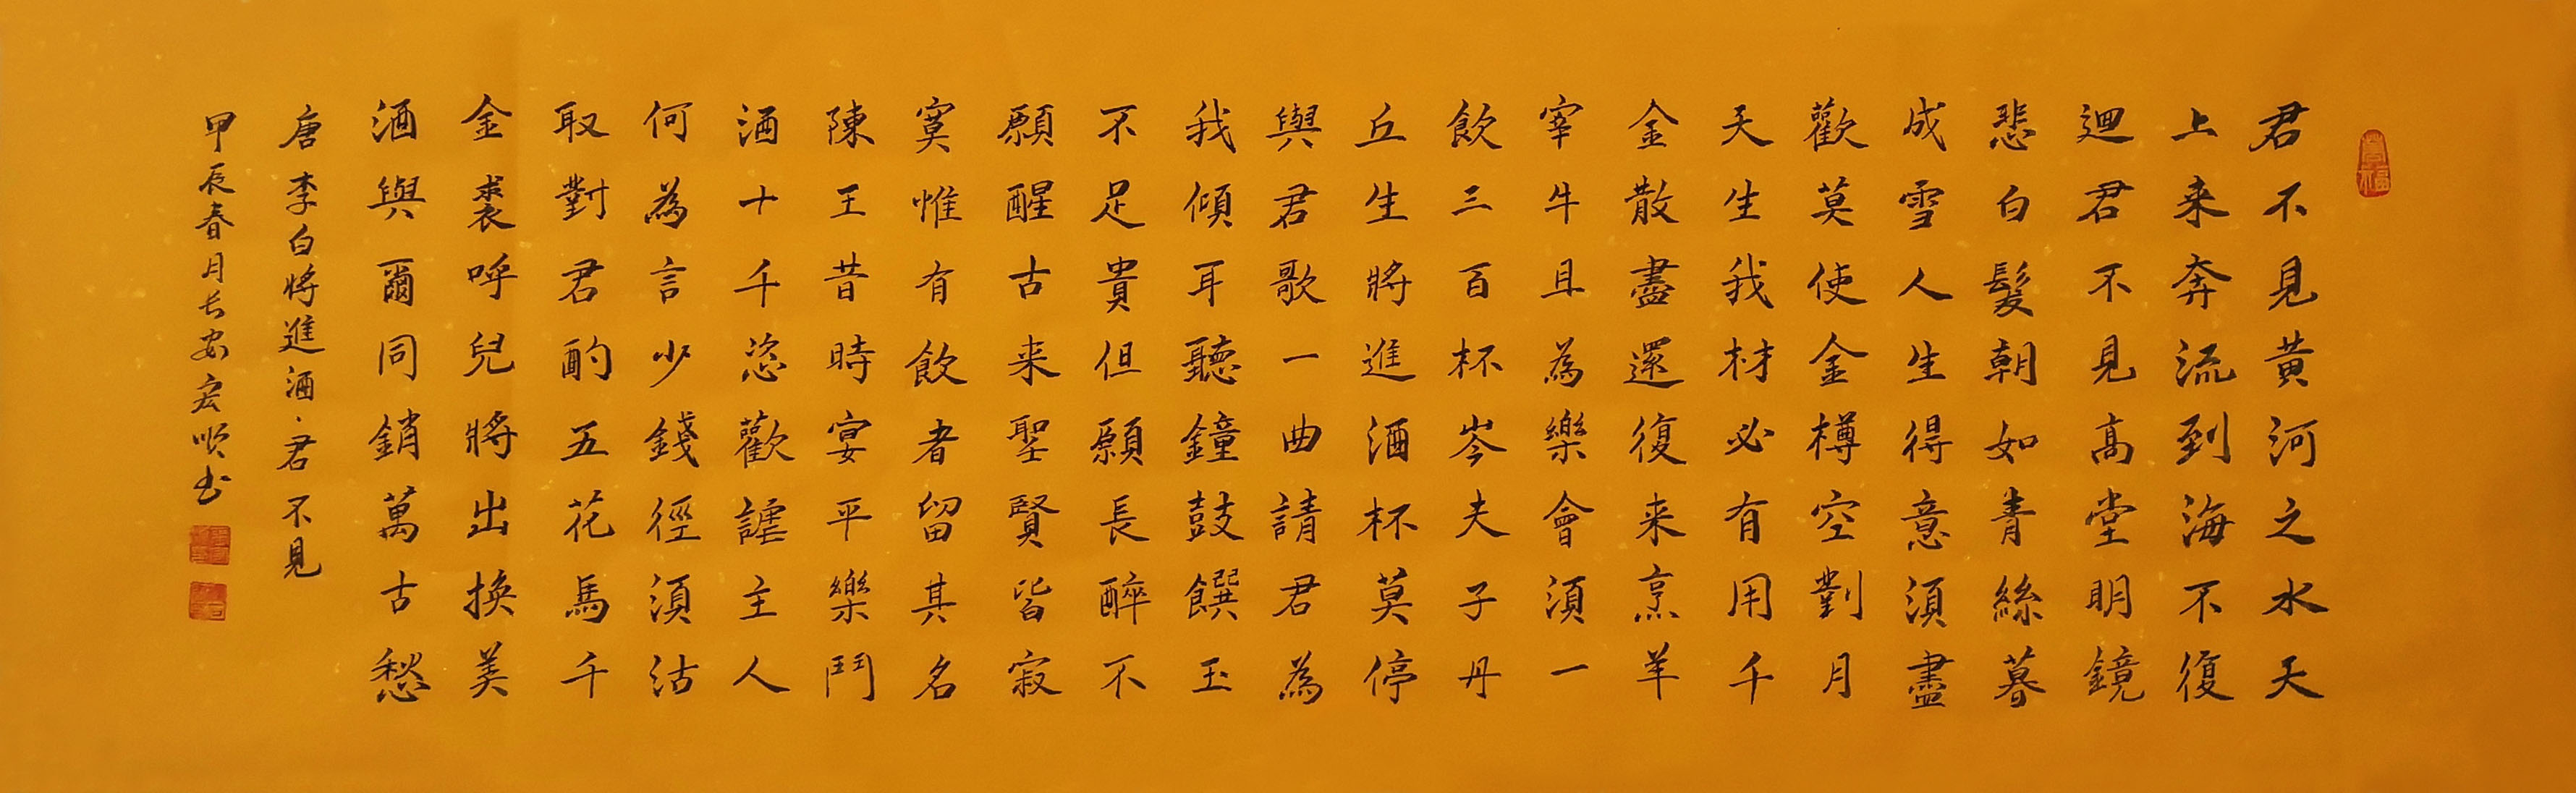 君不見黃河之水天
上来奔流到海不復
迴君不見高堂明鏡
悲白髮朝如青絲暮
成雪人生得意須盡
歡莫使金樽空對月
天生我材必有用千
金散盡還復来烹羊
宰牛且為樂會須一
飲三百杯岑夫子丹
丘生將進酒杯莫停
與君歌一曲請君為
我傾耳聽鐘鼓饌玉
不足貴但願長醉不
願醒古来聖賢皆寂
寞惟有飲者留其名
陳王昔時宴平樂鬥
酒十千恣歡謔主人
何為言少錢徑須沽
取對君酌五花馬千
金裘呼兒將出換美
酒與爾同銷萬古愁
唐李白將進酒·君不見
甲辰春月长安宏顺书